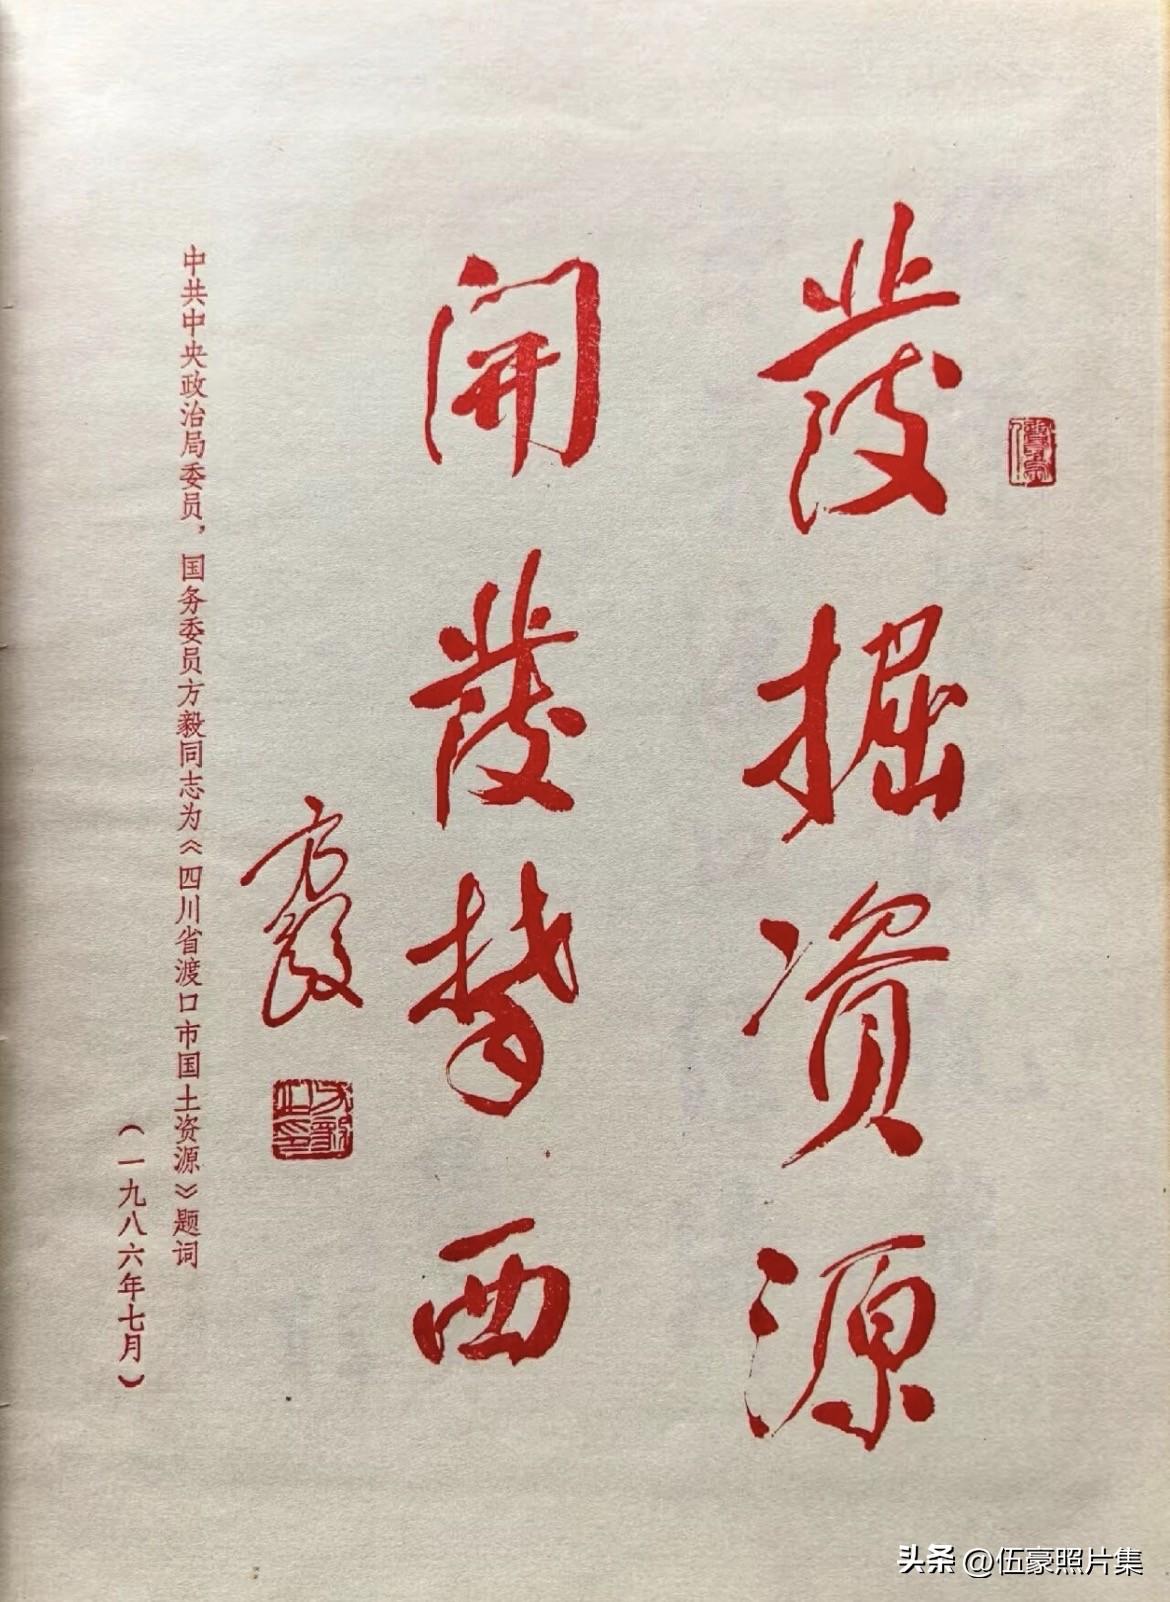 發掘资源
開發攀西
方毅
中共中央政治局委员，国务委员方毅同志为《四川省渡口市国土资源》题词
（一九八六年七月）
方毅之印
头条 @伍豪照片集